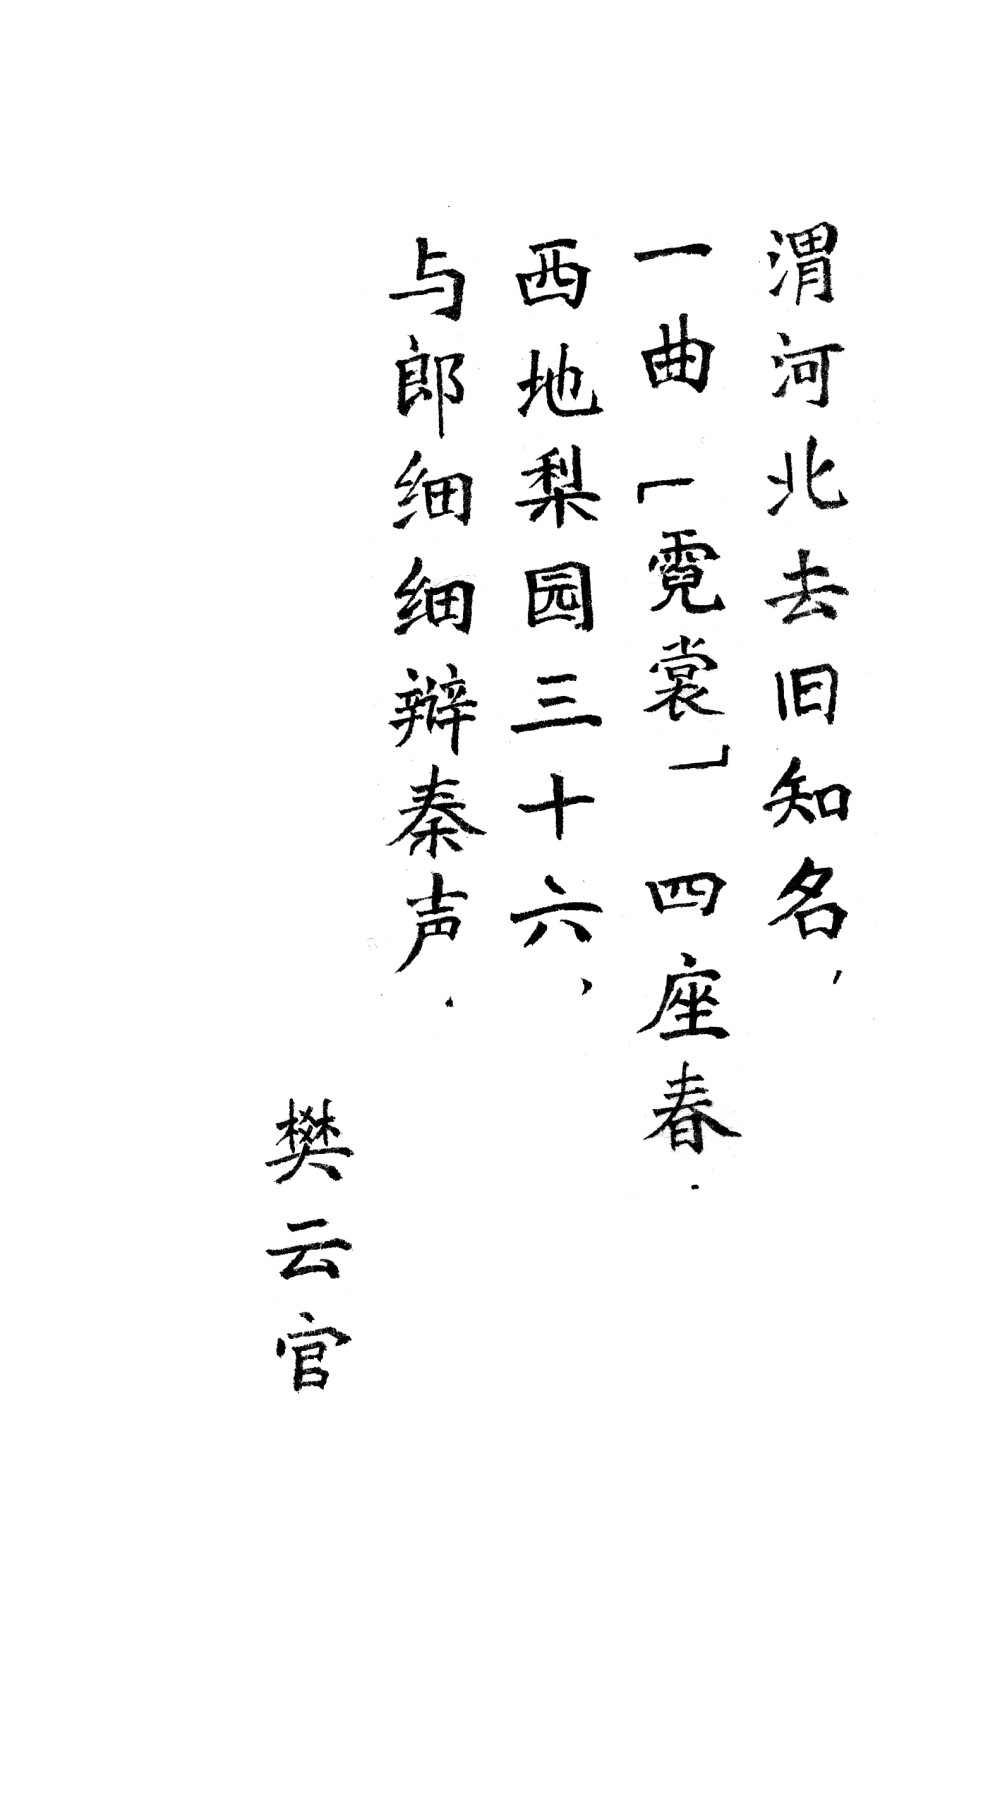 渭河北去旧知名，
一曲「霓裳」四座春．
西地梨园三十六，
与郎细细辩秦声．
樊云官